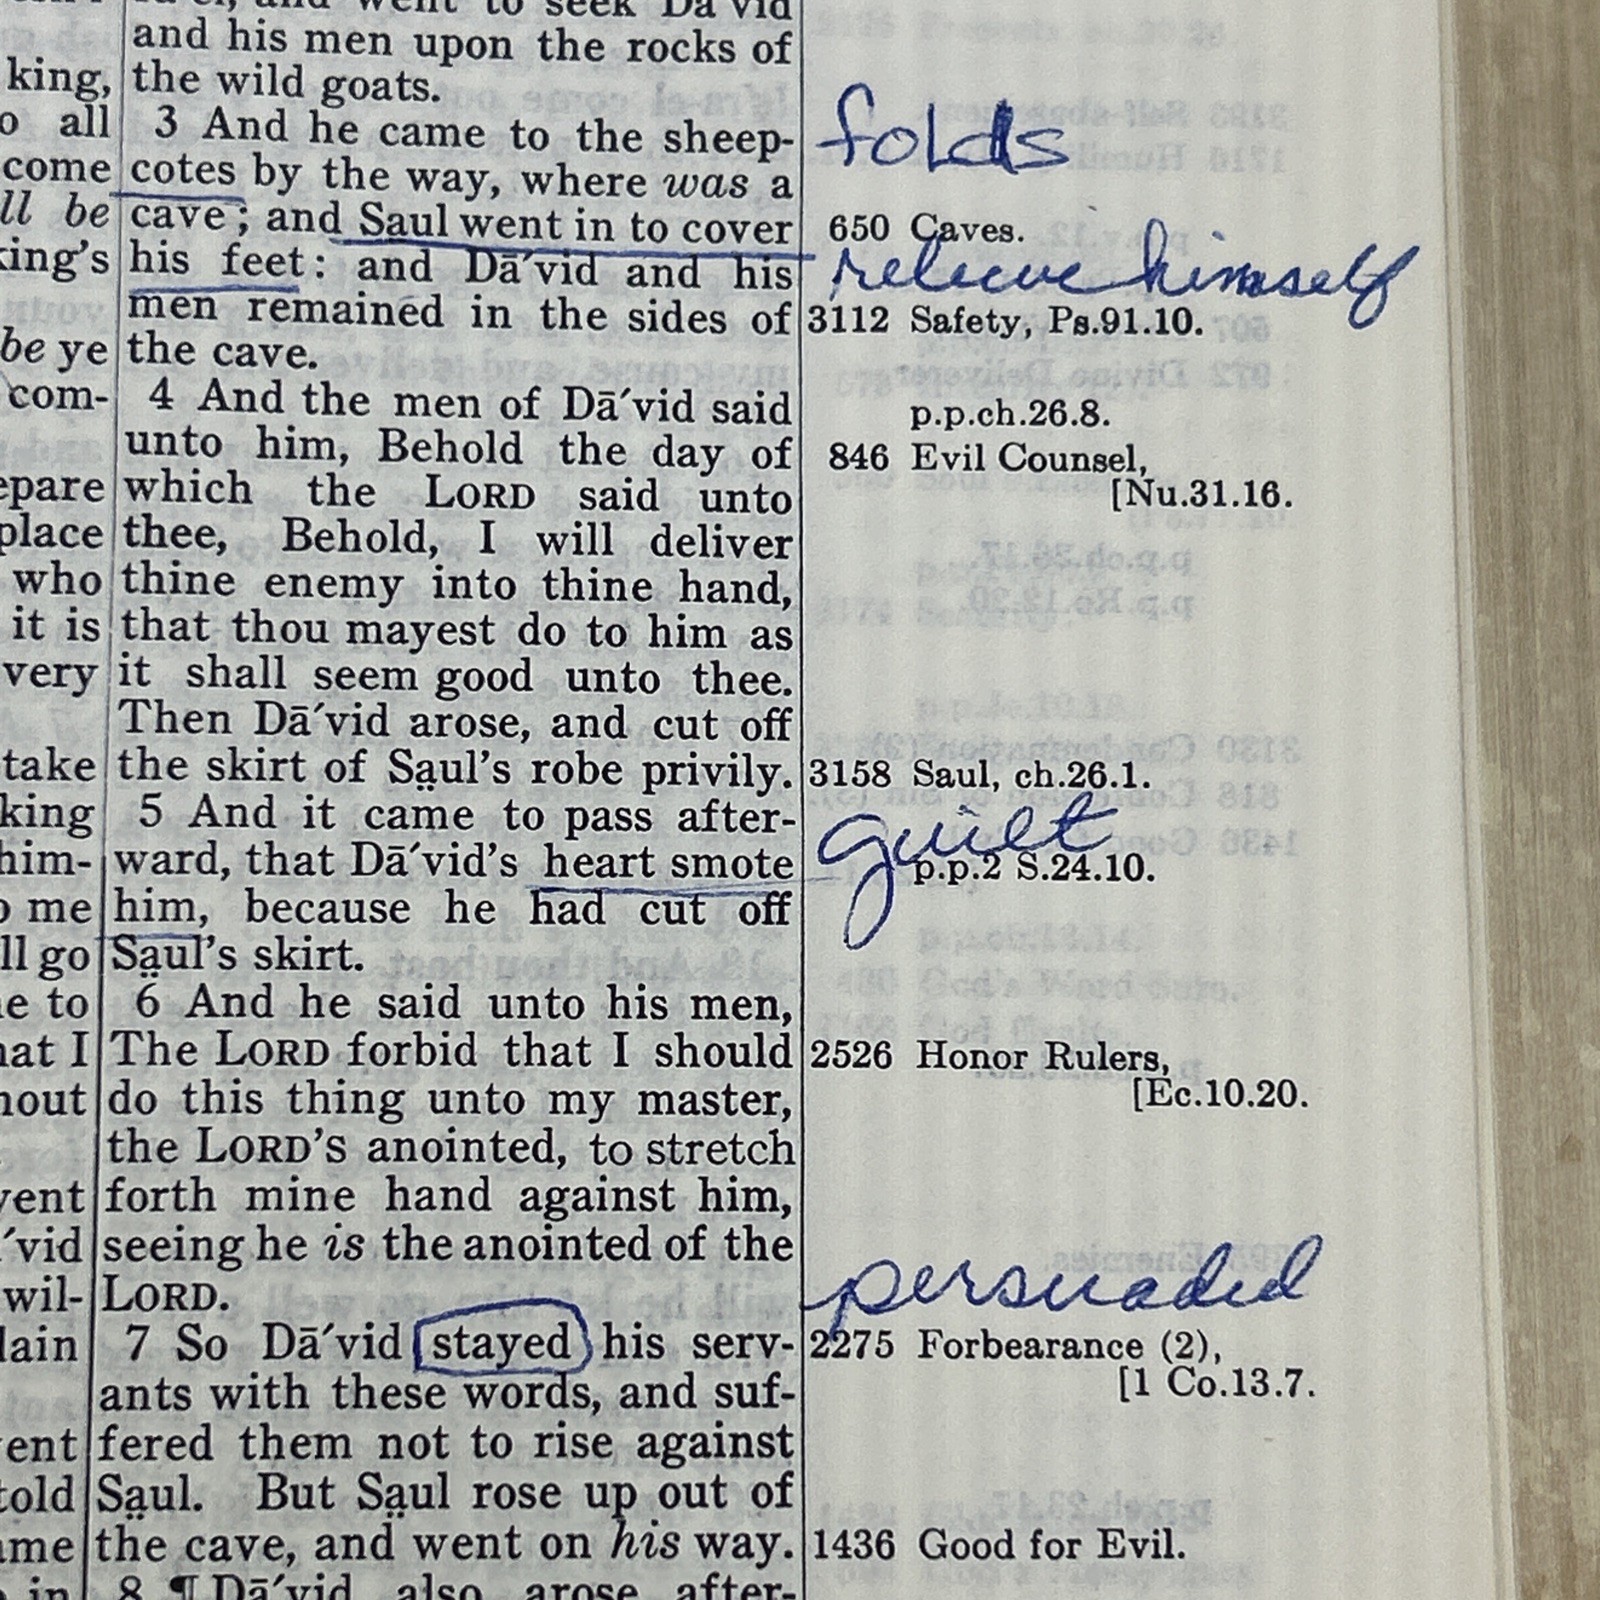 and went to seek Dā´vid
and his men upon the rocks of
the wild goats.
3 And he came to the sheep-
cotes by the way, where was a
cave; and Saul went in to cover
his feet: and Dā´vid and his
men remained in the sides of
the cave.
4 And the men of Dā´vid said
unto him, Behold the day of
which the LORD said unto
thee, Behold, I will deliver
thine enemy into thine hand,
that thou mayest do to him as
it shall seem good unto thee.
Then Dā´vid arose, and cut off
the skirt of Sa̤ul's robe privily.
5 And it came to pass after-
ward, that Dā´vid's heart smote
him, because he had cut off
Sa̤ul's skirt.
6 And he said unto his men,
The LORD forbid that I should
do this thing unto my master,
the LORD'S anointed, to stretch
forth mine hand against him,
seeing he is the anointed of the
LORD.
7 So Dā´vid stayed his serv-
ants with these words, and suf-
fered them not to rise against
Sa̤ul. But Sa̤ul rose up out of
the cave, and went on his way.
8 ¶ Dā´vid also arose after-
king,
all
come
be
king's
be ye
com-
place
who
it is
very
take
king
him-
me
go
to
I
wil-
folds
650 Caves.
relieve himself
3112 Safety, Ps.91.10.
p.p.ch.26.8.
846 Evil Counsel,
[Nu.31.16.
3158 Saul, ch.26.1.
guilt
p.p.2 S.24.10.
2526 Honor Rulers,
[Ec.10.20.
persuaded
2275 Forbearance (2),
[1 Co.13.7.
1436 Good for Evil.